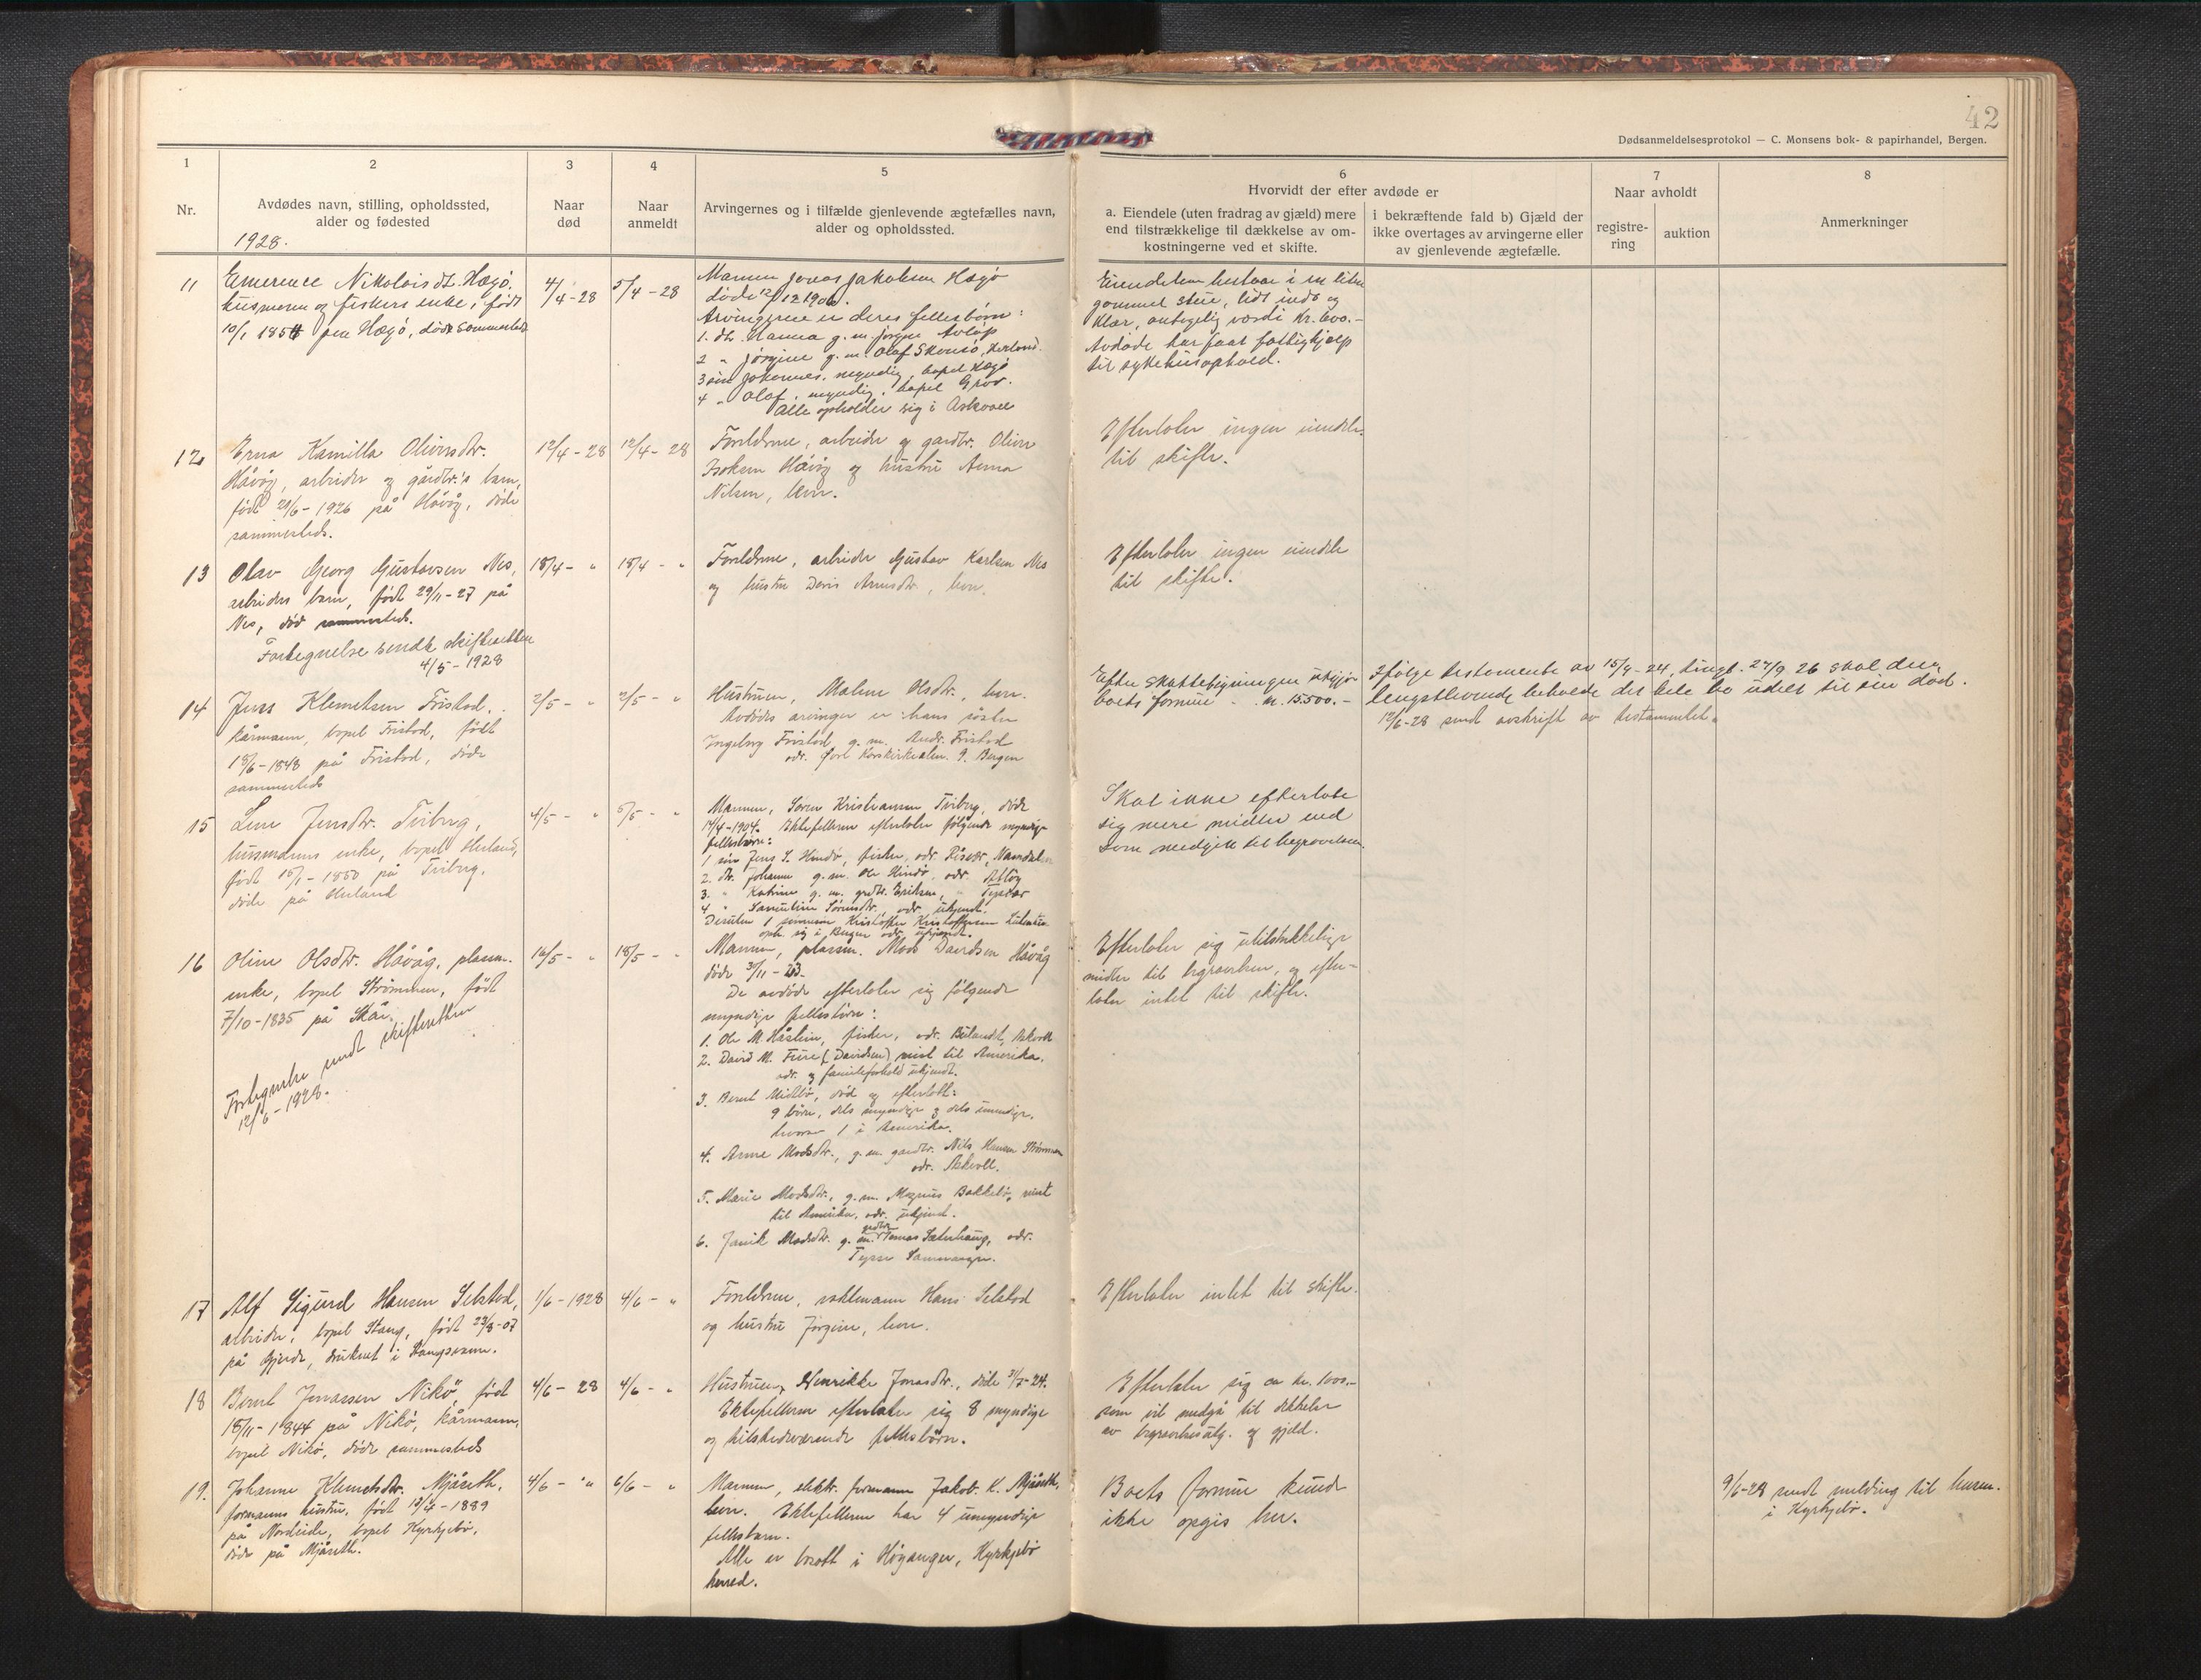 42
Dødsanmeldelsesprotokol — C. Monsens bok- & papirhandel, Bergen.
1
2
3
4
5
6
7
8
Nr.
Avdødes navn, stilling, opholdssted,
alder og fødested
1928.
Naar
død
Naar
anmeldt
Arvingernes og i tilfælde gjenlevende ægtefælles navn,
alder og opholdssted.
Hvorvidt der efter avdøde er
a. Eiendele (uten fradrag av gjæld) mere
end tilstrækkelige til dækkelse av om-
kostningerne ved et skifte.
i bekræftende fald b) Gjæld der
ikke overtages av arvingerne eller
av gjenlevende ægtefælle.
Naar avholdt
registre-
ring
auktion
Anmerkninger
11
Emerence Nikolaisdt. Hægø,
husmoren og fiskers enke, født
10/1 1854 paa Hægø, døde sammesteds
4/4-28
5/4-28
Mannen Jonas Jakobsen Hægø
døde 12/12 1900.
Arvingerne er deres fellesbørn:
1. dtr. Hanna g. m. Jørgen Avløp
2 " Jørgine g. m. Olaf Skensø, Herland.
3 søn Johannes, myndig, bopel Hægø
4 " Olaf, myndig, bopel Grov.
Alle opholder sig i Askvoll
Eiendelene bestaar i en liten
gammel stue, lidt indb og
klær, antagelig værdi kr. 600.-
Avdøde har faat fattighjælp
til sykehusophold.
12
Erna Kamilla Oliversdtr.
Håvåg, arbeider og gårdbr.'s barn,
født 20/6-1926 på Håvåg, døde
sammesteds.
12/4-28
12/4-28
Foreldrene, arbeider og gardbr. Oliver
Isaksen Håvåg og hustru Anna
Nilsen, lever.
Efterlater ingen eiendele
til skifte.
13
Olav Georg Gustavsen Nes,
arbeiders barn, født 29/11-27 på
Nes, død sammesteds.
Fortegnelse sendt skifteretten
4/5-1928
18/4- "
18/4- "
Foreldrene, arbeider Gustav Karlsen Nes
og hustru Doris Arnesdtr, lever.
Efterlater ingen eiendele
til skifte.
14
Jens Klemetsen Fristad,
kårmann, bopel Fristad, født
18/6-1848 på Fristad, døde
sammesteds
2/5- "
2/5- "
Hustruen, Malene Olsdtr., lever.
Avdødes arvinger er hans søster
Ingeborg Fristad g. m. Andr. Fristad
adr. Korskirkealm. 9. Bergen
Efter skatteligningen utgjør
boets formue kr. 15.500.-
Ifølge testamente av 15/9-24, tingl. 27/9 26 skal den
lengstlevende beholde det hele bo udelt til sin død.
12/6-28 sendt avskrift av testamentet.
15
Lene Jensdtr. Tviberg,
husmanns enke, bopel Herland,
født 15/1-1850 på Tviberg,
døde på Herland
4/5- "
5/5- "
Mannen, Søren Kristiansen Tviberg, døde
14/4-1904. Ektefellerne efterlater følgende myndige
fellesbørn:
1 søn Jens S. Hindø, fisker, adr. Namdalen
2. dtr. Johanne g. m. Ole Hindø, adr. Atløy
3. " Katrine g. m. grdbr. Eriksen, "
4 " Sørensdtr. adr. ukjendt.
Desuten 1 Kristoffer Kristoffersen
oph. sig i Bergen adr. ukjendt.
Skal ikke efterlate
sig mere midler end
som medgik til begravelsen.
16
Oline Olsdtr. Håvåg, plassm.
enke, bopel Strømmen, født
7/10-1835 på Skår.
Fortegnelse sendt skifteretten
12/6-1928.
16/5- "
18/5- "
Mannen, plassm. Mads Davidsen Håvåg
døde 3/11-23.
De avdøde efterlater sig følgende
myndige fellesbørn:
1. Ole M. Håsten, fisker, adr. Bulandet, Askvoll
2. David M. Fure (Davidsen) reist til Amerika,
adr. og familieforhold ukjendt.
3. Bernt Midtbø, død og efterlatt:
9 børn, dels myndige og dels umyndige,
hvorav 1 i Amerika.
4. Anne Madsdtr., g. m. gardbr. Nils Hansen Strømmen
adr. Askvoll.
5. Marie Madsdtr., g. m. Magnus Bakkebø, reist
til Amerika, adr. ukjend.
6. Janik Madsdtr. g. m. grdbr. Tomas Sæterhaug, adr.
Tysse Samnanger.
Efterlater sig utilstrekkelige
midler til begravelsen, og efter-
later intet til skifte.
17
Alf Sigurd Hansen Selstad,
arbeider, bopel Stang, født 23/8-07
på Gjerde, druknet i Stangsvann.
1/6-1928
4/6- "
Foreldrene, Hans Selstad
og hustru Jørgine, lever.
Efterlater intet til skifte.
18
Bernt Jonassen Nikø, født
18/11-1844 på Nikø, kårmann,
bopel Nikø, døde sammesteds
4/6-28
4/6- "
Hustruen, Henrikke Jonasdtr., døde 3/3-24.
Ektefellerne efterlater sig 8 myndige
og tilstedeværende fellesbørn.
Efterlater sig ca kr. 1000.-
som vil medgå til dekkelse
av begravelsesutg. og gjeld.
19.
Johanne Klemetsdtr. Mjåseth,
formanns hustru, født 13/4-1889
på Nordeide, bopel Kyrkjebø,
døde på Mjåseth.
4/6- "
6/6- "
Mannen, elektr. formann Jakob K. Mjåseth,
lever. Ektefellerne har 4 umyndige
fellesbarn.
Alle er bosatt i Høyanger, Kyrkjebø
herred.
Boets formue kunde
ikke opgis her.
9/6-28 sendt melding til lensm.
i Kyrkjebø.